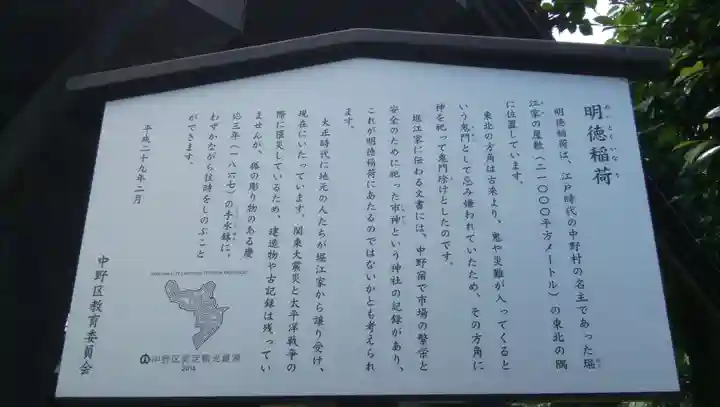 めいとくいなり
明徳稲荷
明徳稲荷は、江戸時代の中野村の名主であった堀
江家の屋敷（二一〇〇〇平方メートル）の東北の隅
に位置しています。
東北の方角は古来より、鬼や災難が入ってくると
いう鬼門として忌み嫌われていたため、その方角に
神を祀って鬼門除けとしたのです。
堀江家に伝わる文書には、中野宿で市場の繁栄と
安全のために祀った市神という神社の記録があり、
これが明徳稲荷にあたるのではないかとも考えられ
ます。
大正時代に地元の人たちが堀江家から譲り受け、
現在にいたっています。関東大震災と太平洋戦争の
際に罹災しているため、建造物や古記録は残ってい
ませんが、狐の彫り物のある慶
応三年（一八六七）の手水鉢に、
わずかながら往時をしのぶこと
ができます。
平成二十九年二月
中野区教育委員会
中野区認定観光資源
2014